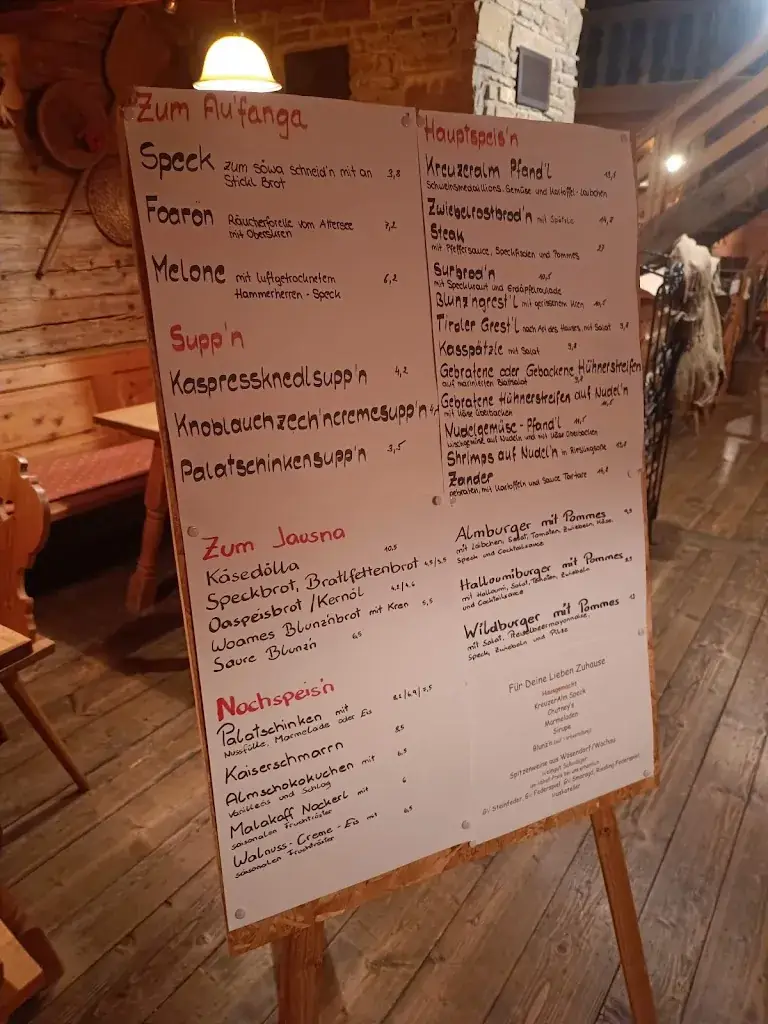 Zum Au'fanga
Speck zum söwa schneid'n mit an 3,8
Stickl Brot
Foarön Räucherforelle vom Attersee 7,2
mit Oberskren
Melone mit luftgetrocknetem 6,2
Hammerherren-Speck
Supp'n
Kaspressknedlsupp'n 4,2
Knoblauchzech'ncremesupp'n
Palatschinkensupp'n 3,5
Zum Jausna
Käsedölla 10,5
Speckbrot, Bratlfettenbrot 4,5/3,5
Oaspeisbrot/Kernöl 4,2/4,6
Woames Blunz'nbrot mit Kren 5,5
Saure Blunz'n 6,5
Nochspeis'n
Palatschinken mit
Nussfülle, Marmelade oder Eis
Kaiserschmarrn
Almschokokuchen mit 6,5
Vanilleeis und Schlag
Malakoff Nockerl mit 6
saisonalen Fruchtröster
Walnuss-Creme-Eis mit 6,5
saisonalen Fruchtröster
Hauptspeis'n
Kreuzeralm Pfand'l
Schweinsmedaillions, Gemüse und Kartoffel-Laibchen
Zwiebelrostbrod'n mit Spätzle
Steak
mit Pfeffersauce, Speckfisolen und Pommes
Surbrod'n 10,5
mit Speckkraut und Erdäpfelroulade
Blunzngrest'l mit gerissenem Kren
Tiroler Grest'l nach Art des Hauses, mit Salat 9,8
Kasspätzle mit Salat 9,8
Gebratene oder Gebackene Hühnerstreifen
auf marinierten Blattsalat
Gebratene Hühnerstreifen auf Nudel'n
mit Käse überbacken 11,5
Nudelgemüse-Pfand'l 11,5
Mischgemüse auf Nudeln und mit Käse überbacken
Shrimps auf Nudel'n in Rieslingsoße
Zander
gebraten, mit Kartoffeln und Sauce Tartare
Almburger mit Pommes 9,5
mit Laibchen, Salat, Tomaten, Zwiebeln, Käse,
Speck und Cocktailsauce
Halloumiburger mit Pommes
mit Halloumi, Salat, Tomaten, Zwiebeln
und Cocktailsauce
Wildburger mit Pommes
mit Salat, Preiselbeermayonnaise,
Speck, Zwiebeln und Pilze
Für Deine Lieben Zuhause
Hausgemacht
KreuzerAlm Speck
Chutney's
Marmeladen
Sirupe
Blunz'n
Spitzenweine aus Wösendorf/Wachau
Gv. Steinfeder, Gv. Federspiel, Gv. Smaragd, Riesling Federspiel
Muskateller